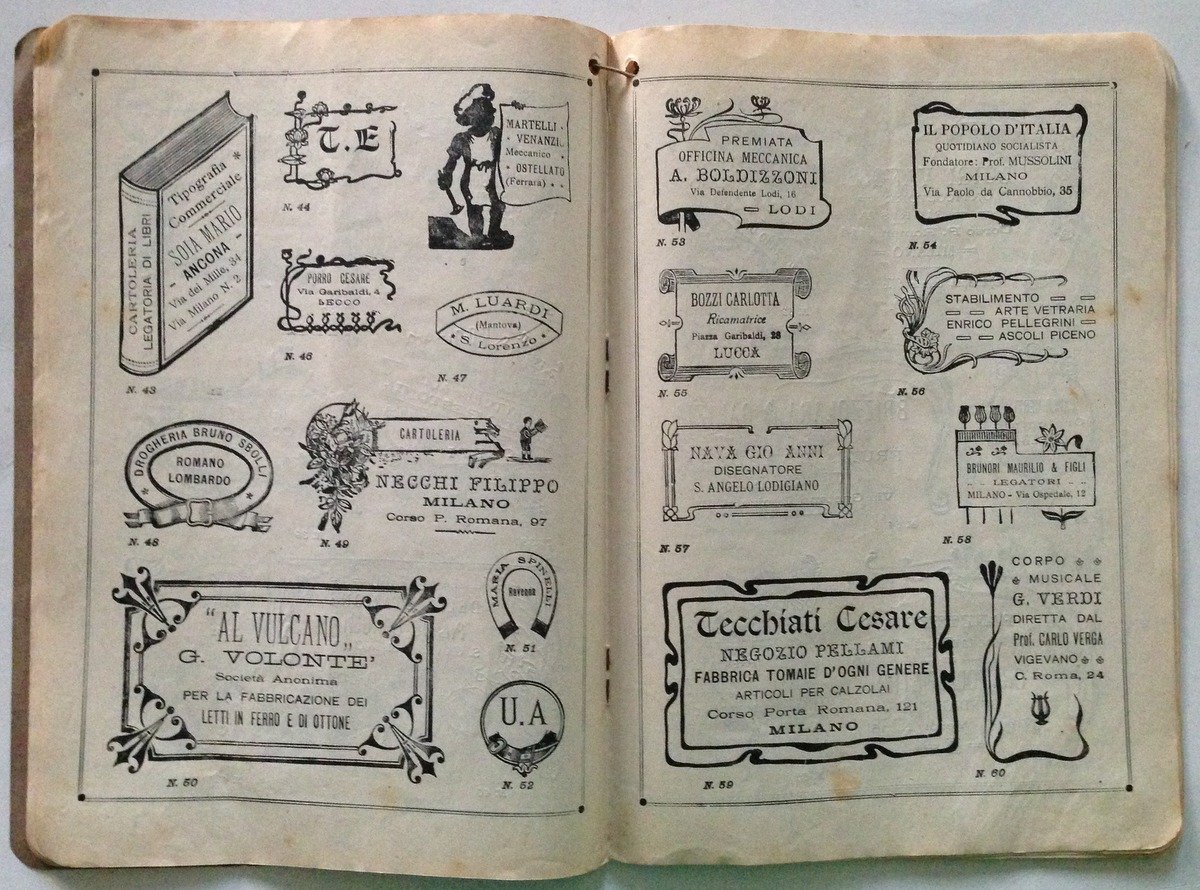 CARTOLERIA
LEGATORIA DI LIBRI
Tipografia
Commerciale
SOIA MARIO
- ANCONA -
Via dei Mille, 34
Via Milano N. 2
N. 43
T. E
N. 44
MARTELLI
VENANZI
Meccanico
OSTELLATO
(Ferrara)
5
PORRO CESARE
Via Garibaldi, 4
LECCO
N. 46
M. LUARDI
(Mantova)
S. Lorenzo
N. 47
DROGHERIA BRUNO SBOLLI
ROMANO
LOMBARDO
N. 48
CARTOLERIA
NECCHI FILIPPO
MILANO
Corso P. Romana, 97
N. 49
"AL VULCANO„
G. VOLONTE'
Società Anonima
PER LA FABBRICAZIONE DEI
LETTI IN FERRO E DI OTTONE
N. 50
MARIA SPINELLI
Ravenna
N. 51
U. A
N. 52
PREMIATA
OFFICINA MECCANICA
A. BOLDIZZONI
Via Defendente Lodi, 16
LODI
N. 53
IL POPOLO D'ITALIA
QUOTIDIANO SOCIALISTA
Fondatore: Prof. MUSSOLINI
MILANO
Via Paolo da Cannobbio, 35
N. 54
BOZZI CARLOTTA
Ricamatrice
Piazza Garibaldi, 28
LUCCA
N. 55
STABILIMENTO
ARTE VETRARIA
ENRICO PELLEGRINI
ASCOLI PICENO
N. 56
NAVA GIO ANNI
DISEGNATORE
S. ANGELO LODIGIANO
N. 57
BRUNORI MAURILIO & FIGLI
LEGATORI
MILANO - Via Ospedale, 12
N. 58
Tecchiati Cesare
NEGOZIO PELLAMI
FABBRICA TOMAIE D'OGNI GENERE
ARTICOLI PER CALZOLAI
Corso Porta Romana, 121
MILANO
N. 59
CORPO
MUSICALE
G. VERDI
DIRETTA DAL
Prof. CARLO VERGA
VIGEVANO
C. Roma, 24
N. 60